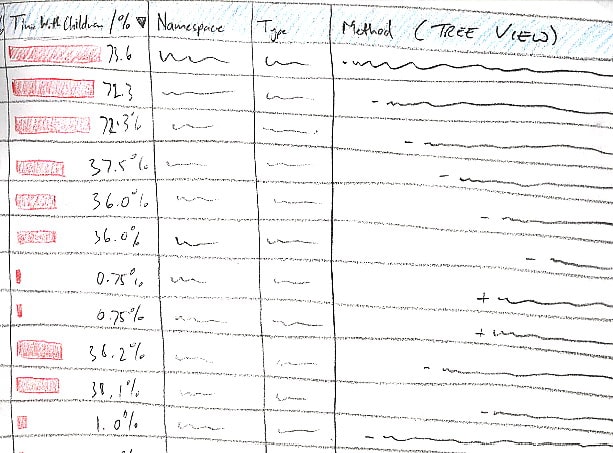 Time With Children /% ▼ Namespace Type Method (TREE VIEW)
73.6
72.3
72.3%
37.5%
36.0%
36.0%
0.75%
0.75%
1.0%